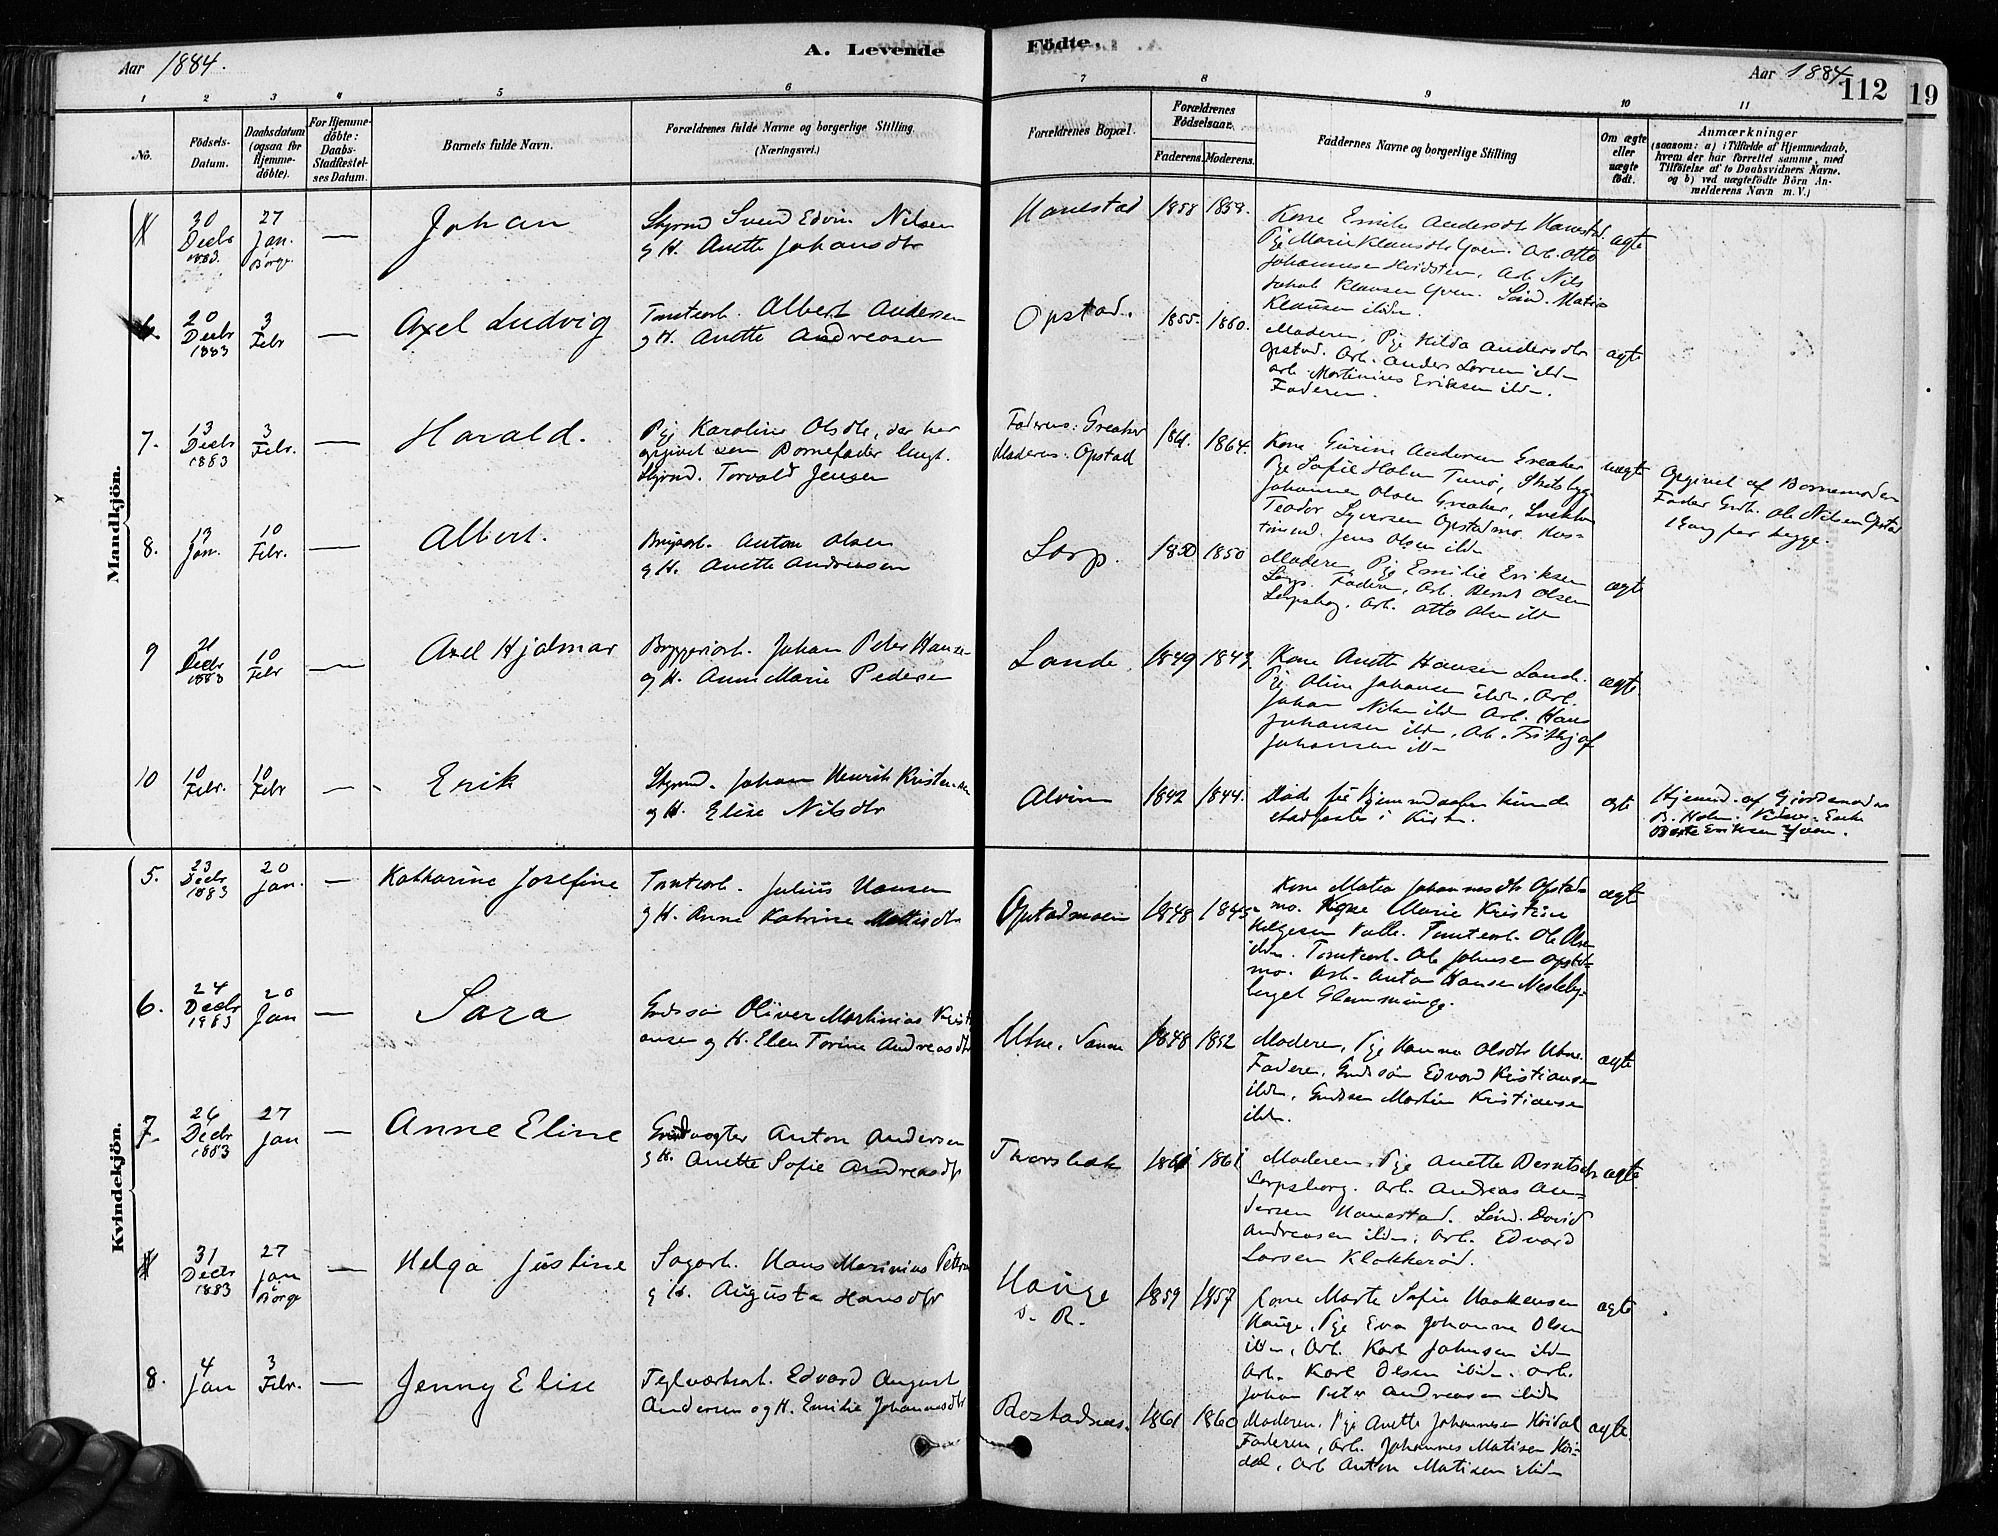 A. Levende Födte,
Aar 1884.
Aar 1884.
112
19
1 2 3 4 5 6 7 8 9 10 11
No.
Födsels-
Datum.
Daabsdatum
(ogsaa for
Hjemme-
döbte).
For Hjemme-
döbte:
Daabs-
Stadfæstel-
ses Datum.
Barnets fulde Navn.
Forældrenes fulde Navne og borgerlige Stilling
(Næringsvei.)
Forældrenes Bopæl.
Forældrenes
Födselsaar.
Faderens. Moderens.
Faddernes Navne og borgerlige Stilling
Om ægte
eller
uægte
födt.
Anmærkninger
(saasom: a) i Tilfælde af Hjemmedaab,
hvem der har forrettet samme, med
Tilföielse af to Daabsvidners Navne.
og b) ved uægtefödte Börn An-
melderens Navn m. V.)
Mandkjön.
30
Decbr
1883.
27
Jan.
Borge
—
Johan
Svend Edvin Nilsen
og H. Anette Johansdtr
Hanestad
1858
Kone Emilie Andersdt Hanestad.
Pige Marie Klausdtr Yven. Arb. Otto
Johannesen Hvidsten. Arb. Nils
Jakob Klausen Yven.
Klausen ibidm.
ægte
6.
20
Decbr
1883
3
Febr
—
Axel Ludvig
Tomtearb. Albert Andersen
og H. Anette Andreasen
Opstad.
1855. 1860.
Moderen, Pige Hilda Andersdtr
Opstad. Arb. Anders Larsen ibidm
Arb. Martinius Eriksen ibdm.
Faderen.
ægte
7.
13
Decbr
1883
3
Febr.
—
Harald.
Pige Karoline Olsdtr, der har
opgivet som Barnefader Ungk.
Torvald Jensen
Faderens: Greaker
Moderens: Opstad
1861. 1864.
Kone Gurine Andersen Greaker
Pige Sofie Holm Tunø,
Johannes Olsen Greaker,
Teodor Syversen Opstadmo. Hus-
Jens Olsen ibdm
uægte
Opgivet af Barnemoderen
Fader Ole Nilsen Opstad
1 Gang for begge.
8.
13
Jan.
10
Febr.
—
Albert.
Anton Olsen
og H. Anette Andreasen
Sarp.
1850 1850
Moderen, Pige Emilie Eriksen
Sarp. Faderen, Arb. Bernt Olsen
Sarpsborg. Arb. Otto Olsen ibdm
ægte
9
21
Decbr
1883
10
Febr
—
Axel Hjalmar
Bryggeriarb. Johan Peter Hansen
og H. Anne Marie Pedersen
Lande.
1849 1843.
Kone Anette Hansen Lande.
Pige Aline Johansen ibdm. Arb.
Johan Nilsen ibdm Arb. Hans
Johansen ibdm, Arb. Fritjof
Johansen ibdm
ægte.
10
10
Febr.
10
Febr
—
Erik
Johan Henrik Kristensen
og H. Elise Nilsdtr
Alvim
1842 1844.
stadfæstes i Kirken.
ægte
Hjemmd. af Gjordemoder
B. Holm.
Berte Eriksen Yven.
Kvindekjön.
5.
23
Decbr
1883
20
Jan.
—
Katharine Josefine
Tomtearb. Julius Hansen
og H. Anne Katrine Mattisdtr
Opstadmoen
1848
Kone Matea Johannesdtr Opstad-
mo. Pigen Marie Kristine
Helgesen Valle. Tomtearb. Ole Olsen
ibdm. Tomtearb. Ole Johnsen Opstd-
mo. Arb. Anton Hansen Nesleby-
berget Glemminge.
ægte
6.
24
Decbr
1983
20
Jan
—
Sara
Oliver Martinius Kristi-
ansen og H. Elen Torine Andreasdtr
Utne, Sanne
1848 1852
Moderen, Pige Hanna Olsdtr Utne.
Faderen, Edvard Kristiansen
ibdm, Martin Kristiansen
ibdm.
ægte
7.
26
Decbr
1883
27
Jan
—
Anne Eline
Anton Andersen
og H. Anette Sofie Andreasdtr
Thorsbæk
1861 1861
Moderen, Pige Anette Berntsdtr
Sarpsborg. Arb. Andreas An-
dersen Hanestad. David
Andreasen ibdm, Arb. Edvard
Larsen Klokkerød.
ægte.
31
Decbr
1883
27
Jan
Borge
—
Helga Justine
Sagarb. Hans Marinius Pettersen
og H. Augusta Hansdtr
Hauge
1859 1857
Kone Marte Sofie Haakensen
Hauge, Pige Eva Johanne Olsen
ibdm, Arb. Karl Johnsen ibdm
Arb. Karl Olsen ibid. Arb.
Johan Peter Andreasen ibidm
ægte
8.
4
Jan
3
Febr.
—
Jenny Elise
Teglværksarb. Edvard August
Andersen og H. Emilie Johannesdtr
1861 1860
Moderen, Pige Anette Johannesen Höidal
Faderen, Arb. Johannes Matisen Höi-
dal, Arb Anton Matisen ibidm
ægte.